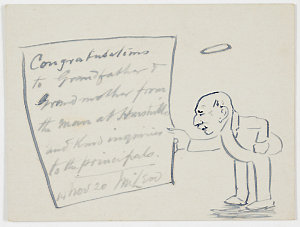 Congratulations
to Grandfather &
Grandmother from
the man at
and kind inquiries
to the principals.
14 Nov 20 McLeod